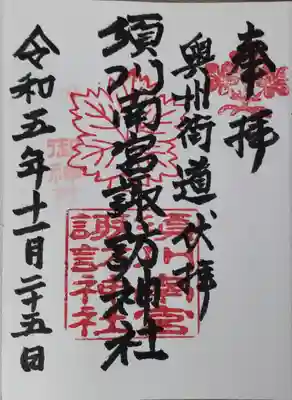 奉拝
奥州街道伏拝
須川南宮諏訪神社
須川南宮
諏訪神社
令和五年十一月二十五日